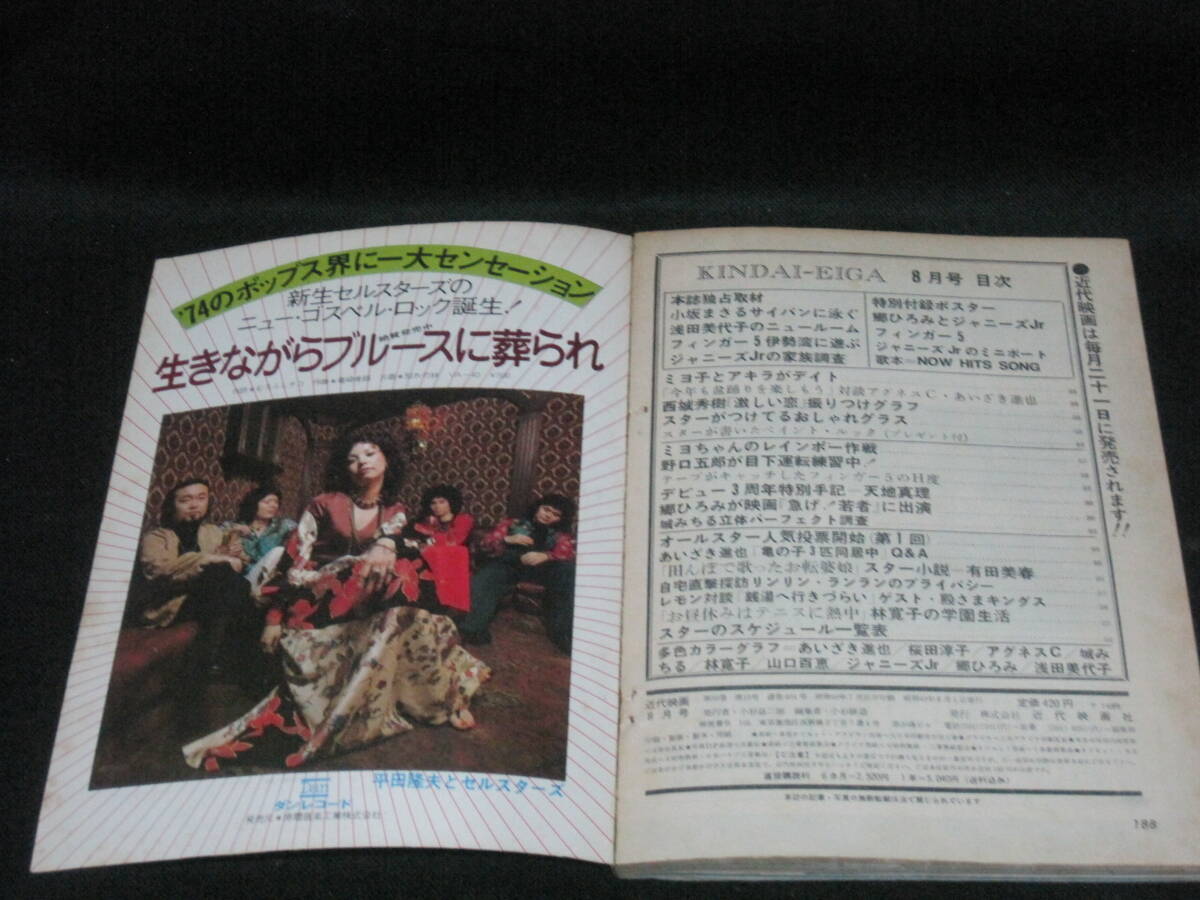 '74のポップス界に一大センセーション
新生セルスターズの
ニュー・ゴスペル・ロック誕生!
絶賛発売中
生きながらブルースに葬られ
平田隆夫とセルスターズ
ダン・レコード
KINDAI-EIGA 8月号 目次
本誌独占取材
小坂まさるサイパンに泳ぐ
浅田美代子のニュールーム
フィンガー5伊勢湾に遊ぶ
ジャニーズJrの家族調査
特別付録ポスター
郷ひろみとジャニーズJr
フィンガー5
ジャニーズJrのミニポート
歌本=NOW HITS SONG
ミヨ子とアキラがデイト
「今年も盆踊りを楽しもう」対談アグネスC・あいざき進也
西城秀樹「激しい恋」振りつけグラフ
スターがつけてるおしゃれグラス
スターが書いたペイント・ルック(プレゼント付)
ミヨちゃんのレインボー作戦
野口五郎が目下運転練習中!
テープがキャッチしたフィンガー5のH度
デビュー3周年特別手記=天地真理
郷ひろみが映画「急げ!若者」に出演
城みちる立体パーフェクト調査
オールスター人気投票開始(第1回)
あいざき進也「亀の子3匹同居中」Q&A
「田んぼで歌ったお転婆娘」スター小説=有田美春
自宅直撃探訪リンリン・ランランのプライバシー
レモン対談「銭湯へ行きづらい」ゲスト・殿さまキングス
「お昼休みはテニスに熱中」林寛子の学園生活
スターのスケジュール一覧表
多色カラーグラフ=あいざき進也/桜田淳子/アグネスC/城み
ちる/林寛子/山口百恵 ジャニーズJr 郷ひろみ/浅田美代子
●近代映画は毎月二十一日に発売されます!!
近代映画
8月号
定価420円
発行 株式会社 近代映画社
直接購読料 6カ月=2,520円 1年=5,040円(送料込み)
本誌の記事・写真の無断転載は法で禁じられています
188